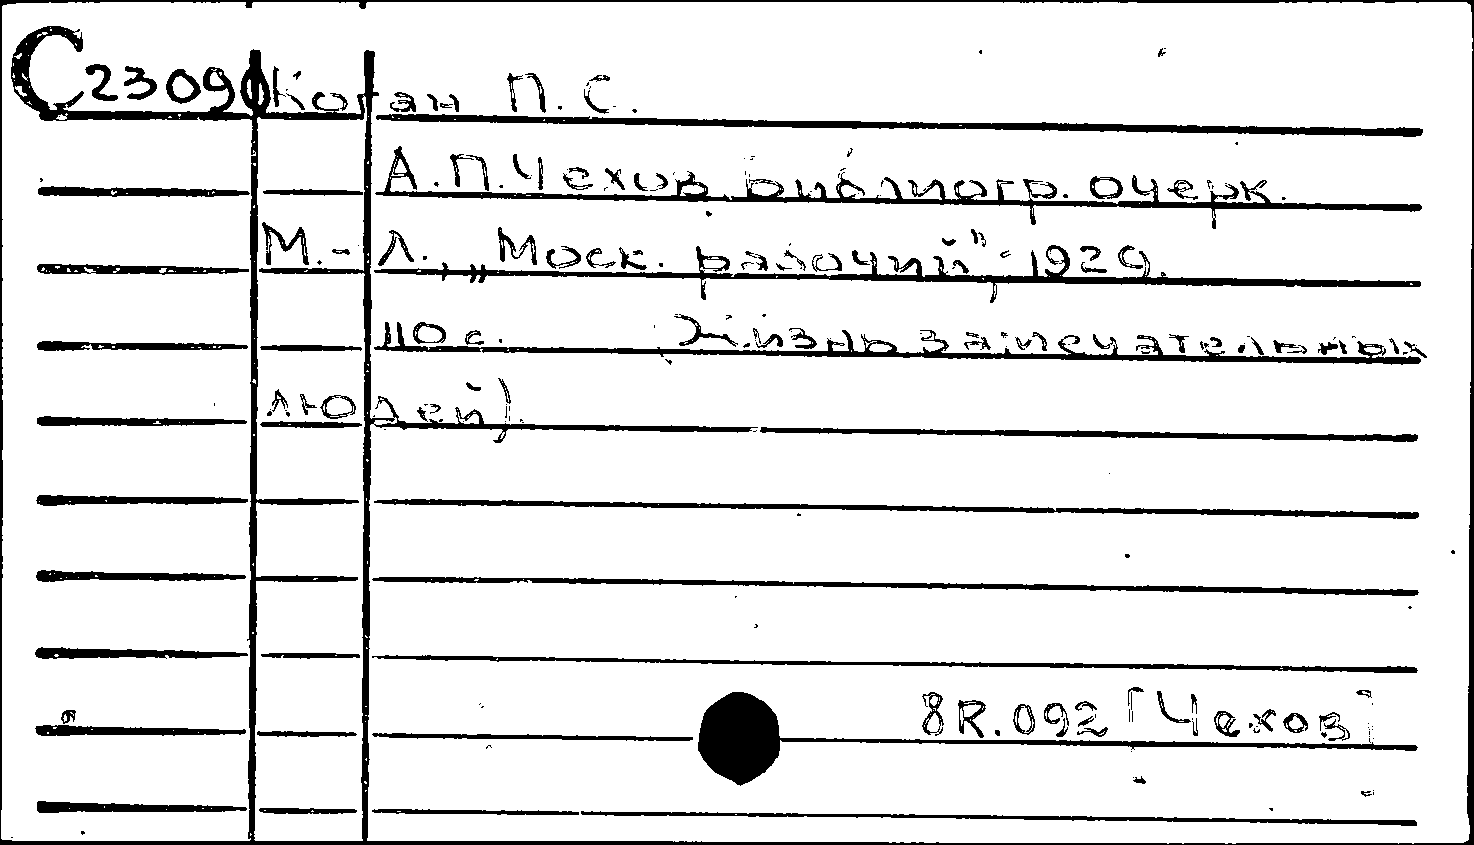 С23090 Коган П.С.
А.П.Чехов. Библиогр. очерк.
М.-Л., „Моск. рабочий", 1929.
110 с. (Жизнь замечательных
людей).
8R.092 [Чехов]